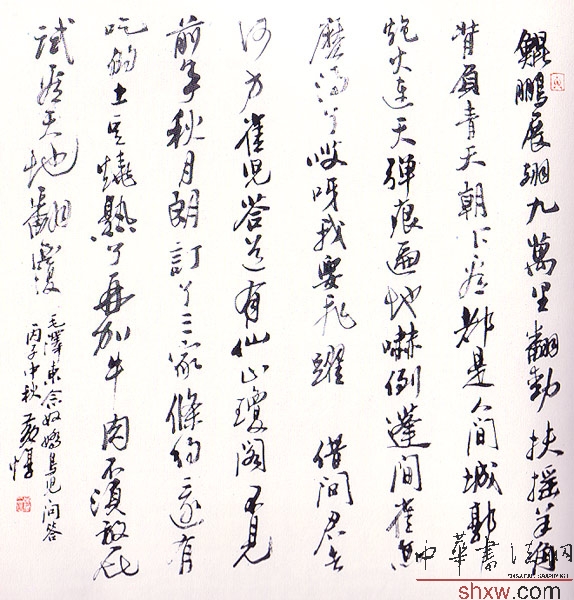 鯤鵬展翅九萬里翻動扶搖羊角
背負青天朝下看都是人間城郭
炮火連天彈痕遍地嚇倒蓬間雀怎
麼得了哎呀我要飛躍 借問君去
何方雀兒答道有仙山瓊閣不見
前年秋月朗訂了三家條約還有
吃的土豆燒熟了再加牛肉不須放屁
試看天地翻覆
毛澤東念奴嬌鳥兒問答
丙子中秋 黃惇
中華書法網
shxw.com